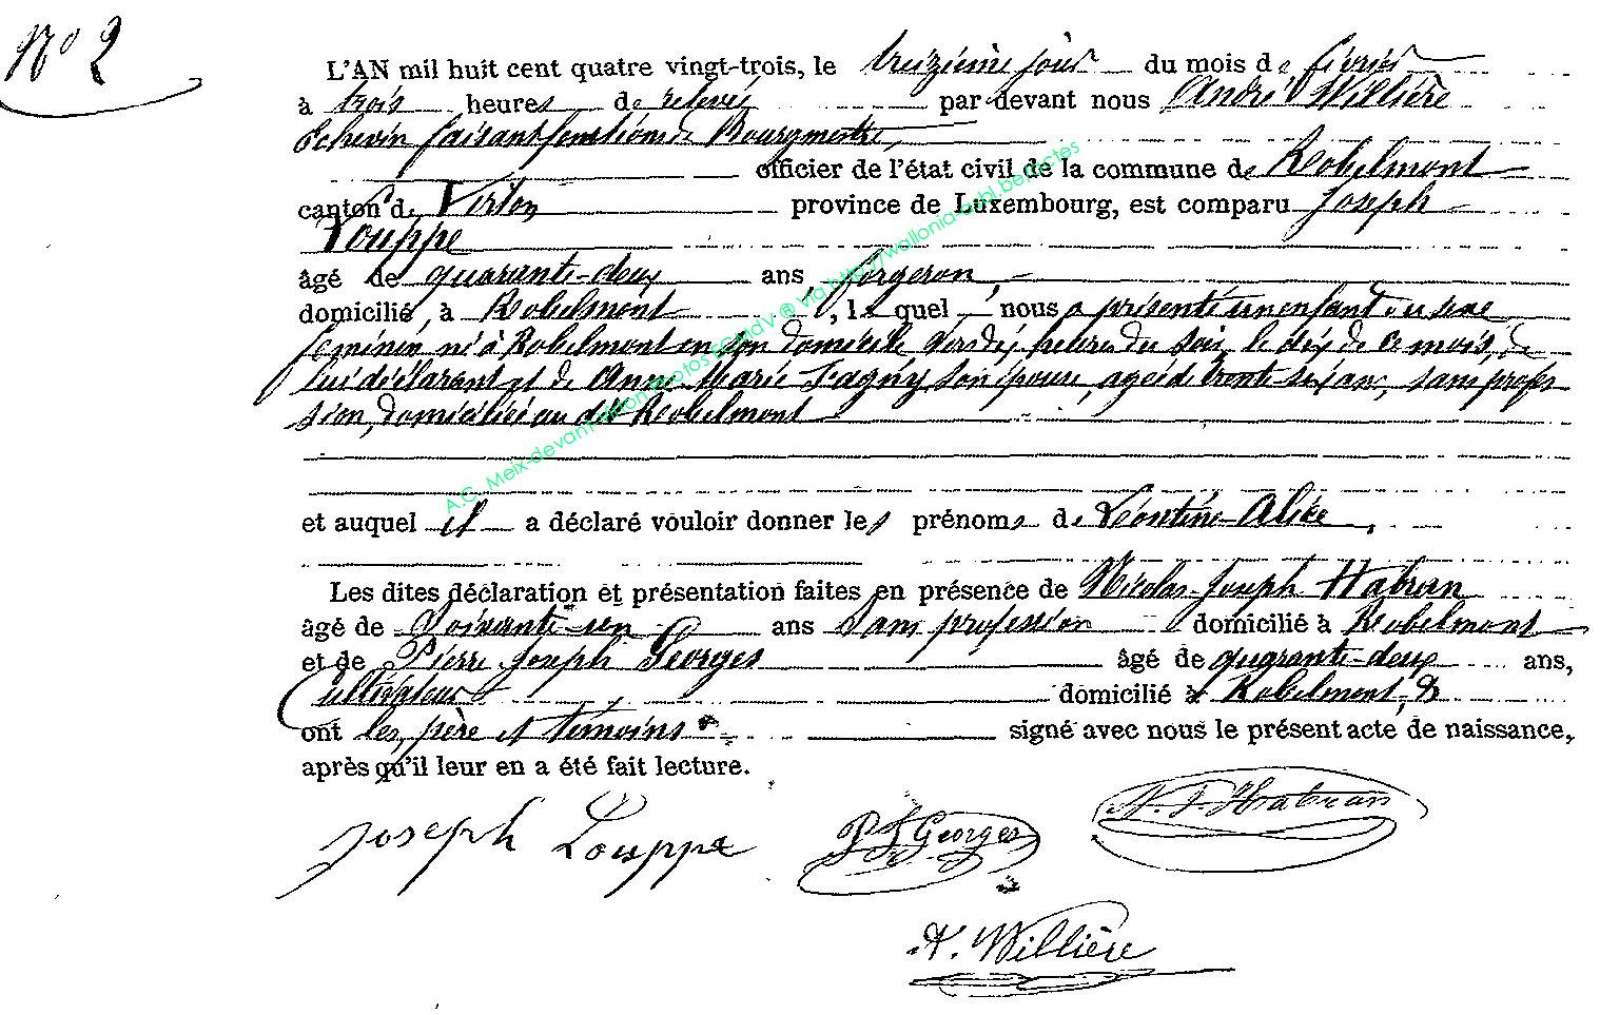 N° 2
L'AN mil huit cent quatre vingt-trois, le treizième jour du mois de février
à trois heures de relevée par devant nous André Willière
Echevin faisant fonctions de Bourgmestre,
officier de l'état civil de la commune de Robelmont
canton de Virton province de Luxembourg, est comparu Joseph
Louppe
âgé de quarante-deux ans, forgeron,
domicilié à Robelmont, lequel nous a présenté un enfant du sexe
féminin né à Robelmont en son domicile vers dix heures du soir le dix de ce mois, de
lui déclarant et de Anne Marie Fagny son épouse, agée de trente six ans, sans profes
sion, domiciliée au dit Robelmont
et auquel il a déclaré vouloir donner les prénoms de Léontine-Alice,
Les dites déclaration et présentation faites en présence de Nicolas-Joseph Habran
âgé de soixante-un ans Sans profession domicilié à Robelmont
et de Pierre Joseph Georges âgé de quarante-deux ans,
Cultivateur domicilié à Robelmont, &
ont les père et témoins signé avec nous le présent acte de naissance,
après qu'il leur en a été fait lecture.
Joseph Louppe P J Georges N. J. Habran
A. Willière
A.C. Meix-devant-Virton Photos EGMdV ® via http://wallonia-asbl.be/actes